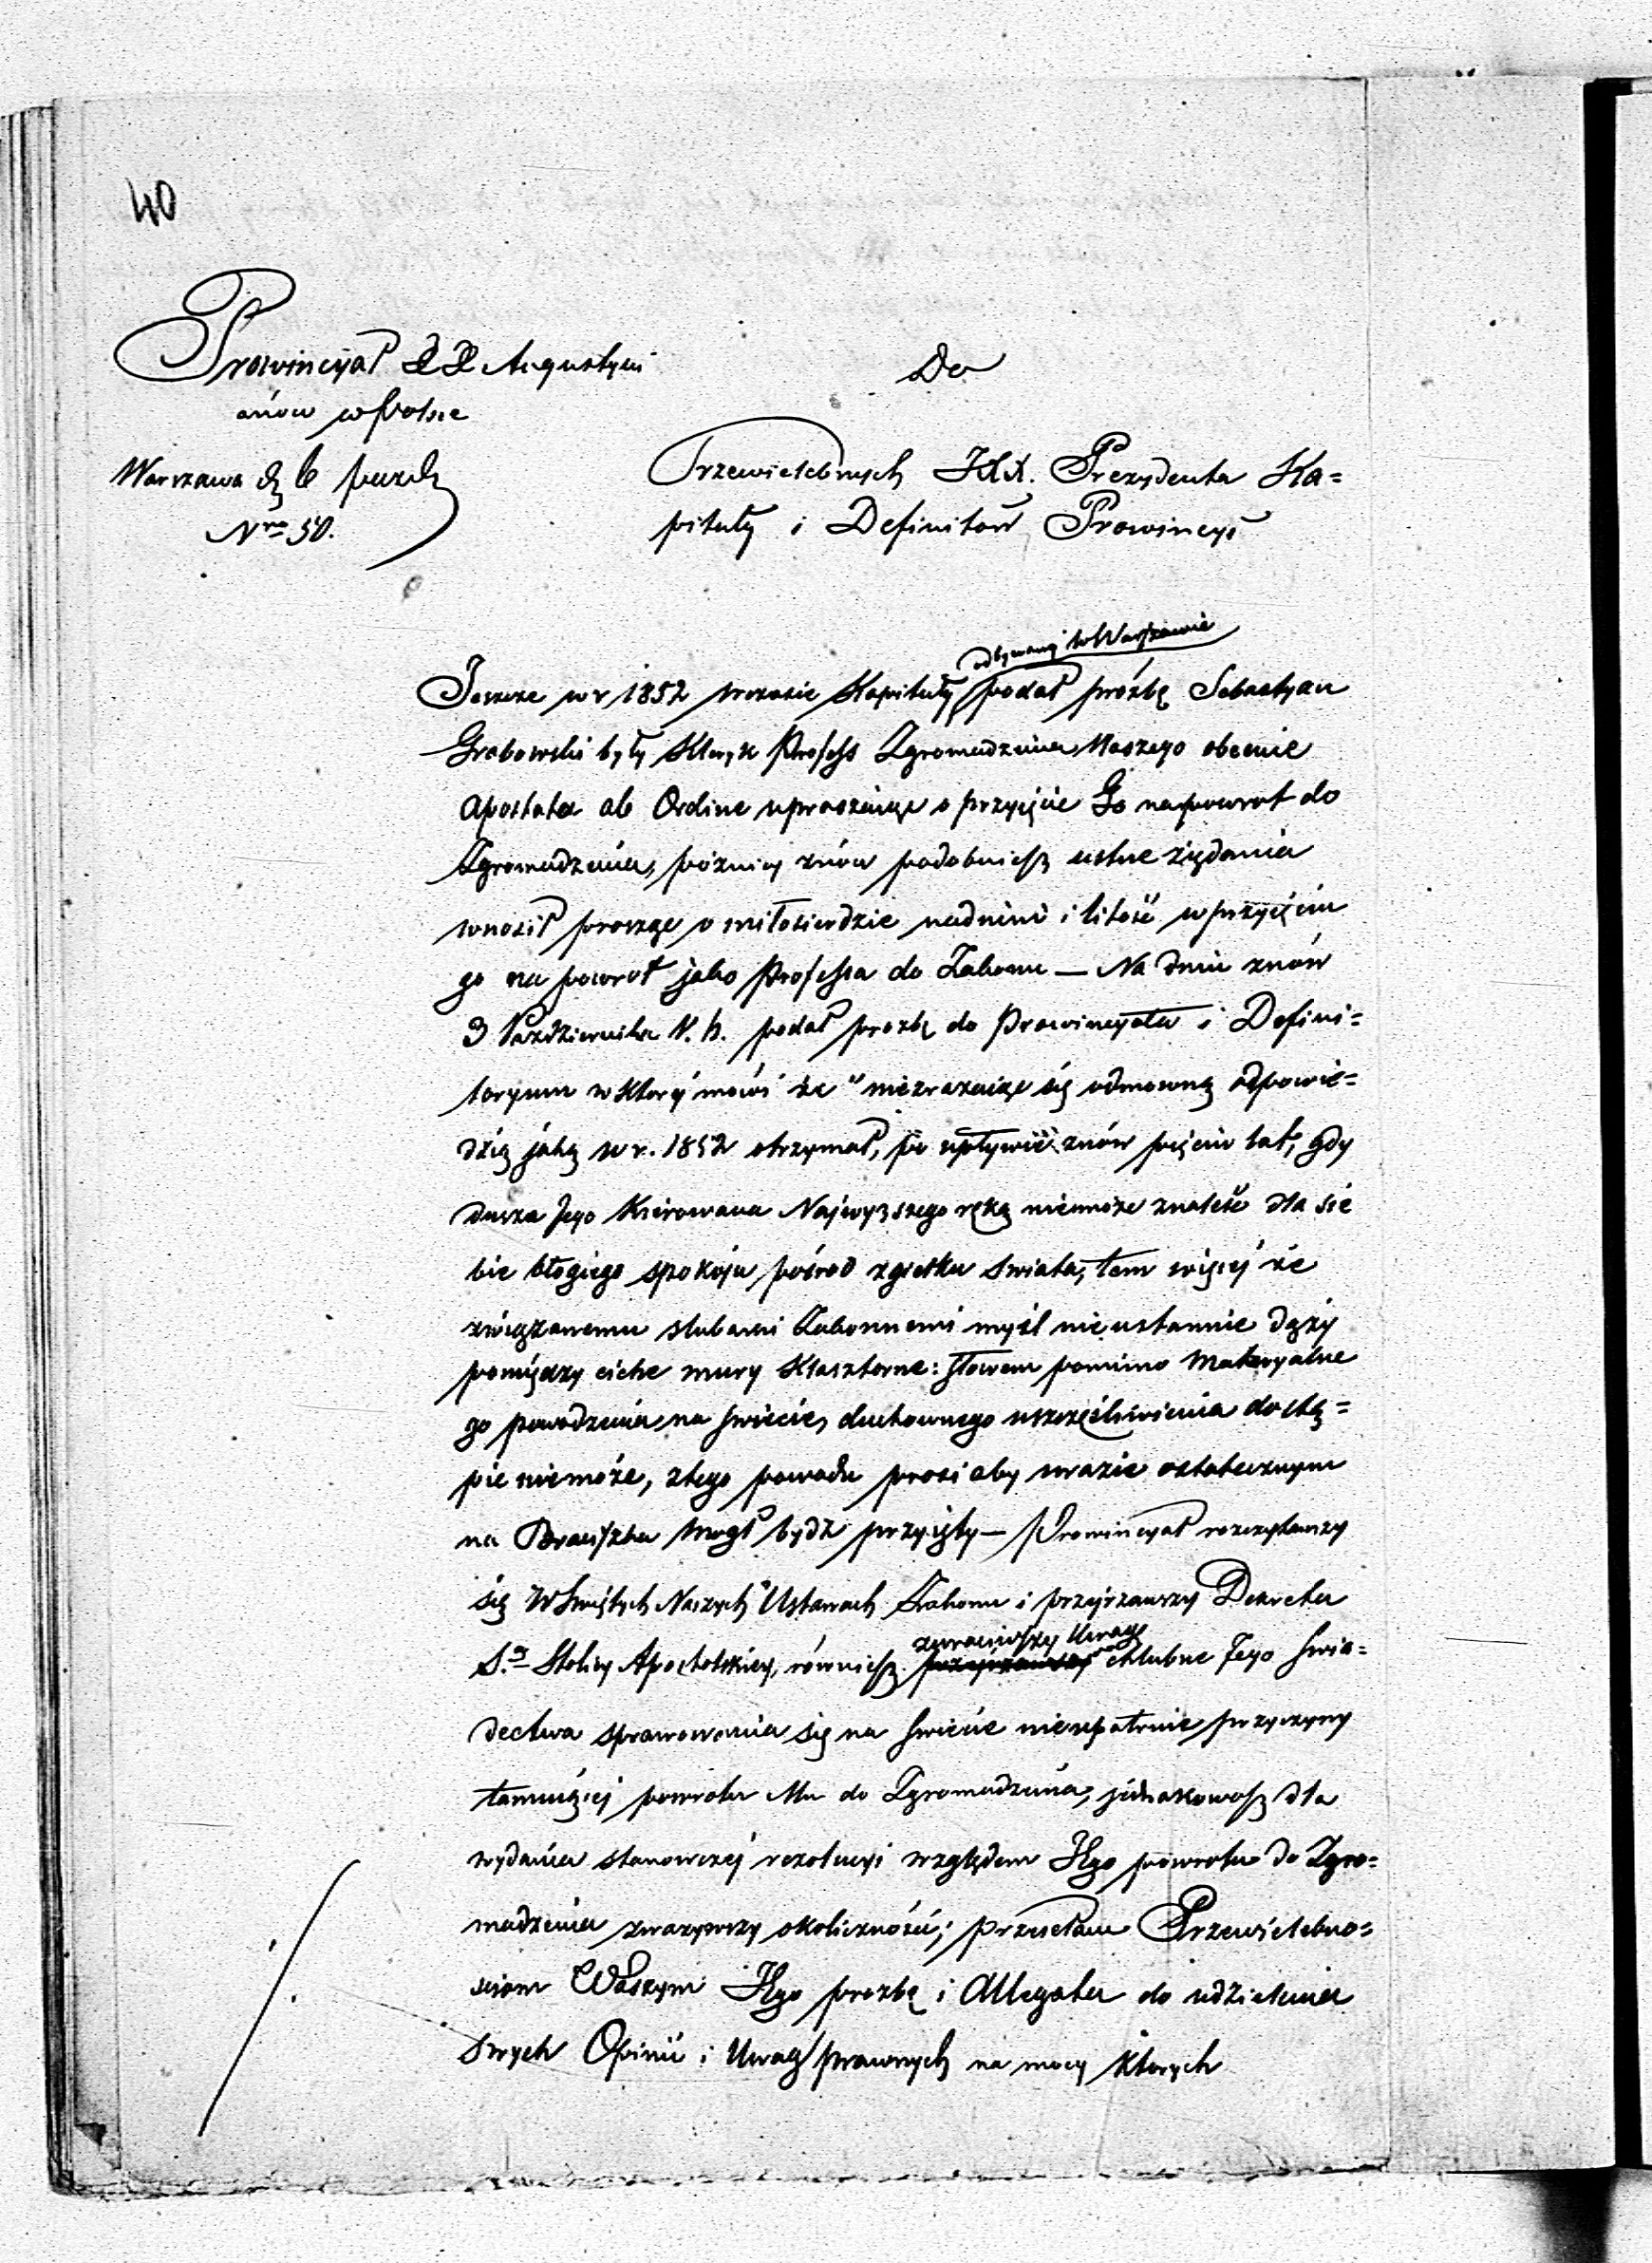 40
Prowincyał XX Augustyni
anów w Polsce
Warszawa d. 6 Paźdz
Nro 50.
Do
Przewielebnych JXX. Prezydenta Ka=
pituły i Definitorów Prowincyi
odbywanej w Warszawie
Jeszcze w r 1852 wczasie Kapituły podał próźbę Sebastyan
Grabowski były Kleryk Profess Zgromadzenia Naszego obecnie
Apostata ab Ordine upraszaiąc o przyięcie Go napowrot do
Zgromadzenia, pózniey znów podobnież ustne żądania
wnosił prosząc o miłosierdzie nadnim i litość w przyięciu
go na powrot jako Professa do Zakonu — Na dniu znów
3 Października r. b. podał prozbę do Prowincyała i Defini=
toryum w ktorej mówi że "niezrażaiąc się odmowną odpowie=
dzią jaką w r. 1852 otrzymał, po upływie znów pięciu lat, gdy
dusza Jego Kierowana Najwyższego ręką niemoże znaleść dla sie
bie błogiego spokoju pośrod zgiełku swiata, tem więcej że
związanemu slubami Zakonnemi myśl nieustannie dąży
pomiędzy ciche mury Klasztorne: słowem pomimo Materyalne
go powodzenia na swiecie, duchownego uszczęśliwienia dostą=
pić niemoże, ztego powodu prosi aby wrazie ostatecznym
na Braciszka mogł bydź przyięty — Prowincyał rozczytawszy
się w Swiętych Naszych Ustawach Zakonu i przejrzawszy Dekreta
S.tej Stolicy Apostolskiey, również
zwrociwszy Uwagę
przejrzawszy chlubne Jego swia=
dectwa sprawowania się na swiecie nieupatruie przyczyny
tamuiącej powrotu Mu do Zgromadzenia, jednakowoż dla
wydania stanowczej rezolucyi względem Jego powrotu do Zgro=
madzenia zważywszy okoliczności, przesełam Przewielebno=
sciom Waszym Jego prozbę i Allegata do udzielenia
swych Opinii i Uwag prawnych na mocy ktorych